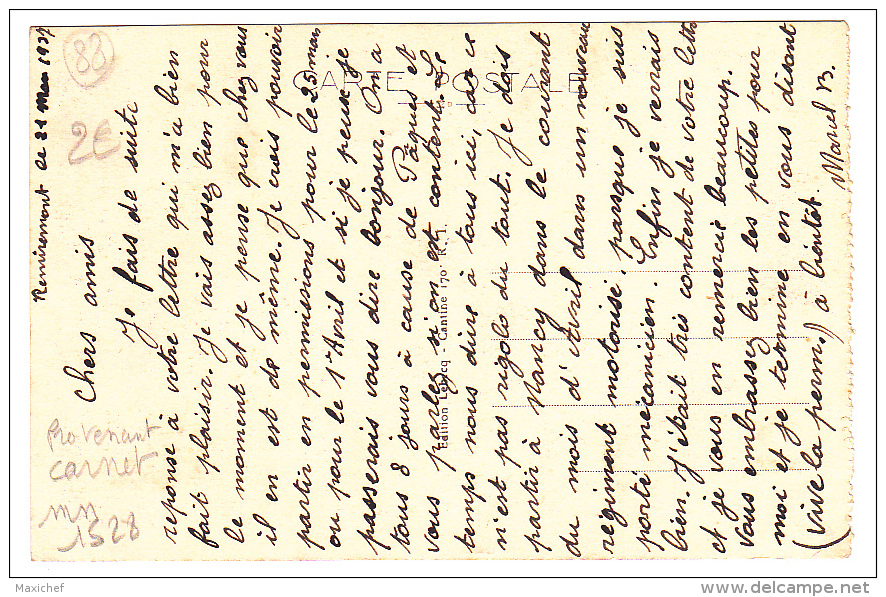 Remiremont ce 21 Mars 1937
Chers amis
Je fais de suite
reponse à votre lettre qui m'a bien
fait plaisir. Je vais assez bien pour
le moment et je pense que chez vous
il en est de même. Je crois pouvoir
partir en permissions pour le 25 mars
ou pour le 1er Avril et si je peux je
passerais vous dire bonjour. On a
tous 8 jours à cause de Pâques et
vous parlez si on est content. Le
temps nous dure à tous ici, car ce
n'est pas rigolo du tout. Je dois
partir à Nancy dans le courant
du mois d'Avril dans un nouveau
regiment motorisé, parsque je suis
porté mécanicien. Enfin je verrais
bien. J'était très content de votre lettre
et je vous en remercie beaucoup.
Vous embrassez bien les petites pour
moi et je termine en vous disant
(vive la perm.) à bientôt. Marcel B.
CARTE POSTALE
Edition Leborcq - Cantine 170e R. I.
83
2€
Provenant
carnet
mn
1328
Maxichef
www.delcampe.net